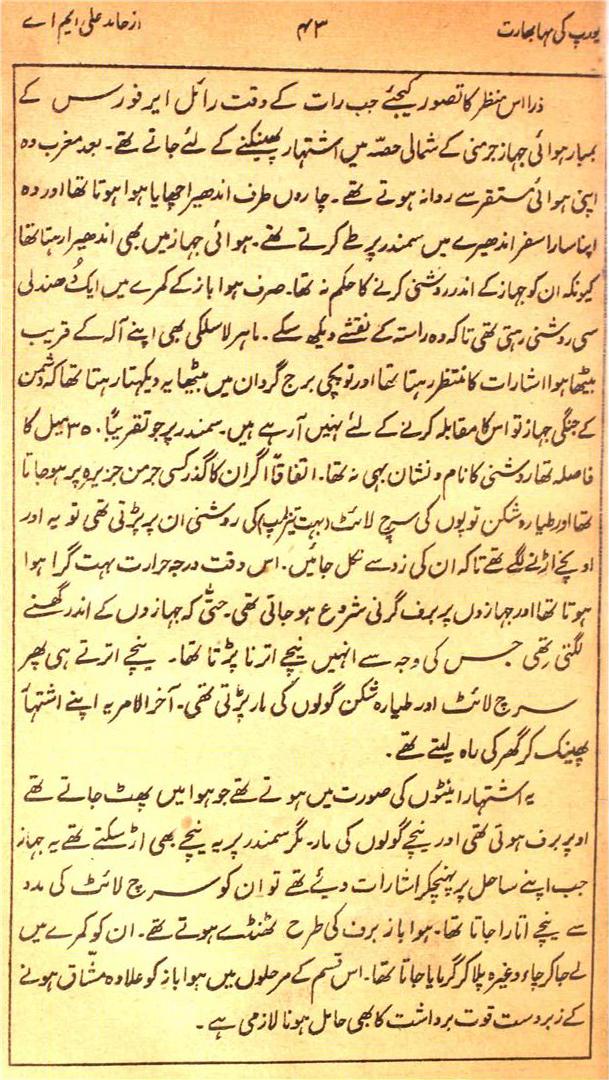 یورپ کی مہابھارت ۴۳ از حامد علی ایم اے
ذرا اس منظر کا تصور کیجئے جب رات کے وقت رائل ایر فورس کے
بمبار ہوائی جہاز جرمنی کے شمالی حصّہ میں اشتہار پھینکنے کے لئے جاتے تھے۔ بعد مغرب وہ
اپنی ہوائی مستقر سے روانہ ہوتے تھے۔ چاروں طرف اندھیرا چھایا ہوا ہوتا تھا اور وہ
اپنا سارا سفر اندھیرے میں سمندر پر طے کرتے تھے۔ ہوائی جہاز میں بھی اندھیرا رہتا تھا
کیونکہ ان کو جہاز کے اندر روشنی کرنے کا حکم نہ تھا۔ صرف ہوا باز کے کمرے میں ایک دُھندلی
سی روشنی رہتی تھی تاکہ وہ راستہ کے نقشے دیکھ سکے۔ ماہر لاسلکی بھی اپنے آلہ کے قریب
بیٹھا ہوا اشارات کا منتظر رہتا تھا اور توپچی برج گردان میں بیٹھا یہ دیکہتا رہتا تھا کہ دشمن
کے جنگی جہاز تو اس کا مقابلہ کرنے کے لئے نہیں آرہے ہیں۔ سمندر پر جو تقریباً ۳۵۰ میل کا
فاصلہ تھا روشنی کا نام و نشان بھی نہ تھا۔ اتفاقاً اگر ان کا گذر کسی جرمن جزیرہ پر ہو جاتا
تھا اور طیارہ شکن توپوں کی سرچ لائٹ (بہت تیز لمپ) کی روشنی ان پر پڑتی تھی تو یہ اور
اونچے اڑنے لگتے تھے تاکہ ان کی زد سے نکل جائیں۔ اس وقت درجہ حرارت بہت گرا ہوا
ہوتا تھا اور جہازوں پر برف گرنی شروع ہو جاتی تھی۔ حتیّٰ کہ جہازوں کے اندر گھسنے
لگتی تھی جس کی وجہ سے انہیں نیچے اترنا پڑتا تھا۔ نیچے اترتے ہی پھر
سرچ لائٹ اور طیارہ شکن گولوں کی مار پڑتی تھی۔ آخر الامر یہ اپنے اشتہا
پھینک کر گھر کی راہ لیتے تھے۔
یہ اشتہار اینٹوں کی صورت میں ہوتے تھے جو ہوا میں پھٹ جاتے تھے
اوپر برف ہوتی تھی اور نیچے گولوں کی مار۔ مگر سمندر پر یہ نیچے بھی اڑ سکتے تھے یہ جہاز
جب اپنے ساحل پر پہنچکر اشارات دیئے تھے تو ان کو سرچ لائٹ کی مدد
سے نیچے اتارا جاتا تھا۔ ہوا باز برف کی طرح ٹھنڈے ہوتے تھے۔ ان کو کمرے میں
لے جا کر چاء وغیرہ پلا کر گرمایا جاتا تھا۔ اس قسم کے مرحلوں میں ہوا باز کو علاوہ مشّاق ہونے
کے زبردست قوت برداشت کا بھی حامل ہونا لازمی ہے۔